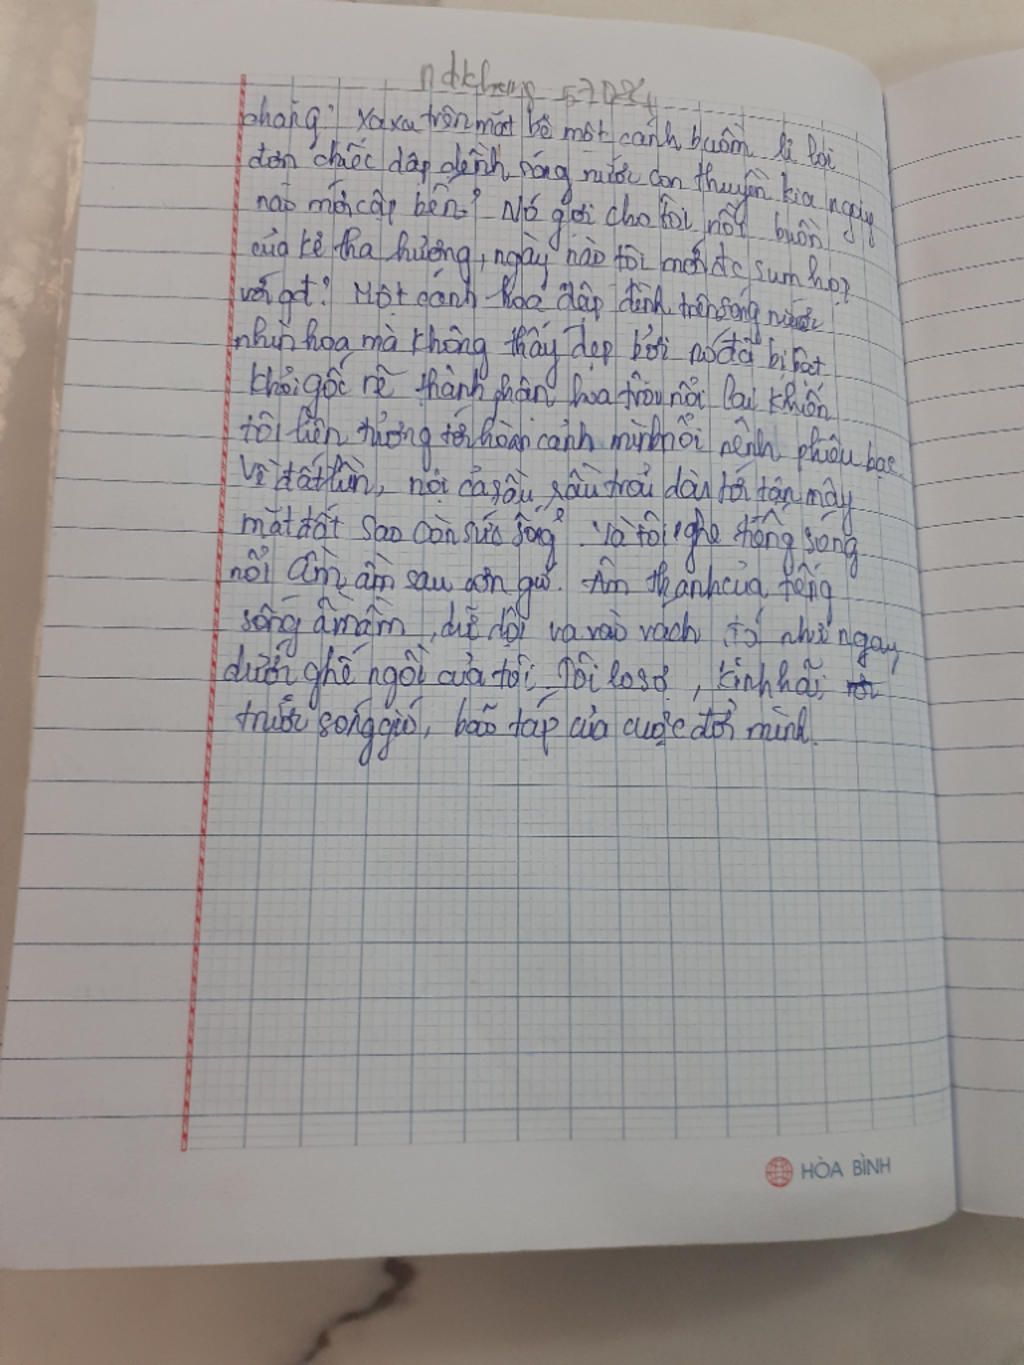 ndkhang 57084
phẳng? xa xa trên mặt bể một cánh buồm lẻ loi
đơn chiếc dập dềnh sóng nước con thuyền kia ngày
nào mới cập bến? Nó gợi cho tôi nỗi buồn
của kẻ tha hương, ngày nào tôi mới đc sum họp
với gđ? Một cánh hoa dập dềnh trên sóng nước
nhìn hoa mà không thấy đẹp bởi nó đã bị bật
khỏi gốc rễ thành phận hoa trôi nổi lại khiến
tôi liên tưởng tới hoàn cảnh mình nổi nênh phiêu bạc
Về đất liền, nội cỏ sầu, sầu trải dài tới tận mây
mặt đất sao còn sức sống? Và tôi nghe tiếng sóng
nổi ầm ầm sau cơn gió. Âm thanh của tiếng
sóng ầm ầm, dữ dội va vào vách đá như ngay
dưới ghế ngồi của tôi. Tôi lo sợ, kinh hãi
trước sóng gió, bão táp của cuộc đời mình.
HÒA BÌNH